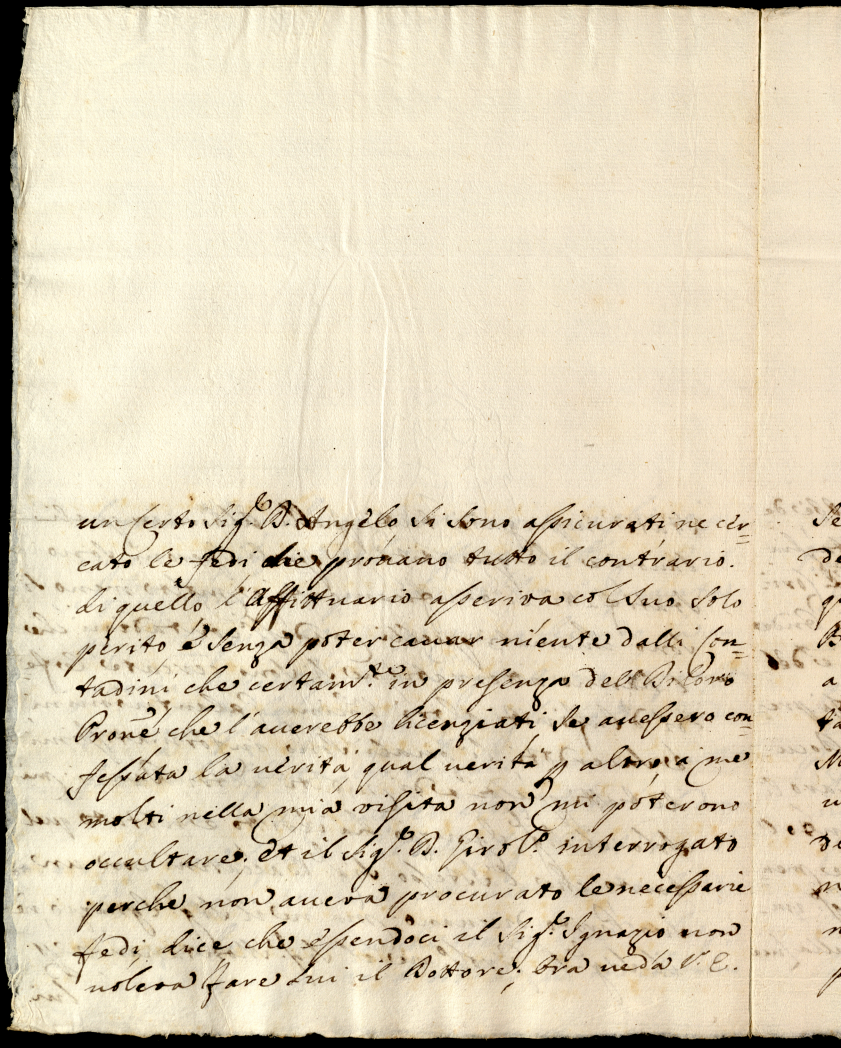 un Certo Sig.re D. Angelo si sono assicurati ne cer=
cato le fedi che provano tutto il contrario.
di quello l'Affittuario asseriva col suo solo
perito e senza poter cavar niente dalli Con=
tadini che certam.te in presenza del
Prone che l'averebbe licenziati se avessero con=
fessata la verità, qual verità p altro, a me
molti nella mia visita non mi poterono
occultare; et il Sig.re D. Girol.o interrogato
perche non aveva procurato le necessarie
fedi, dice che essendoci il Sig.re Ignazio non
voleva fare lui il Dottore; Ora veda V. E.
Se
de